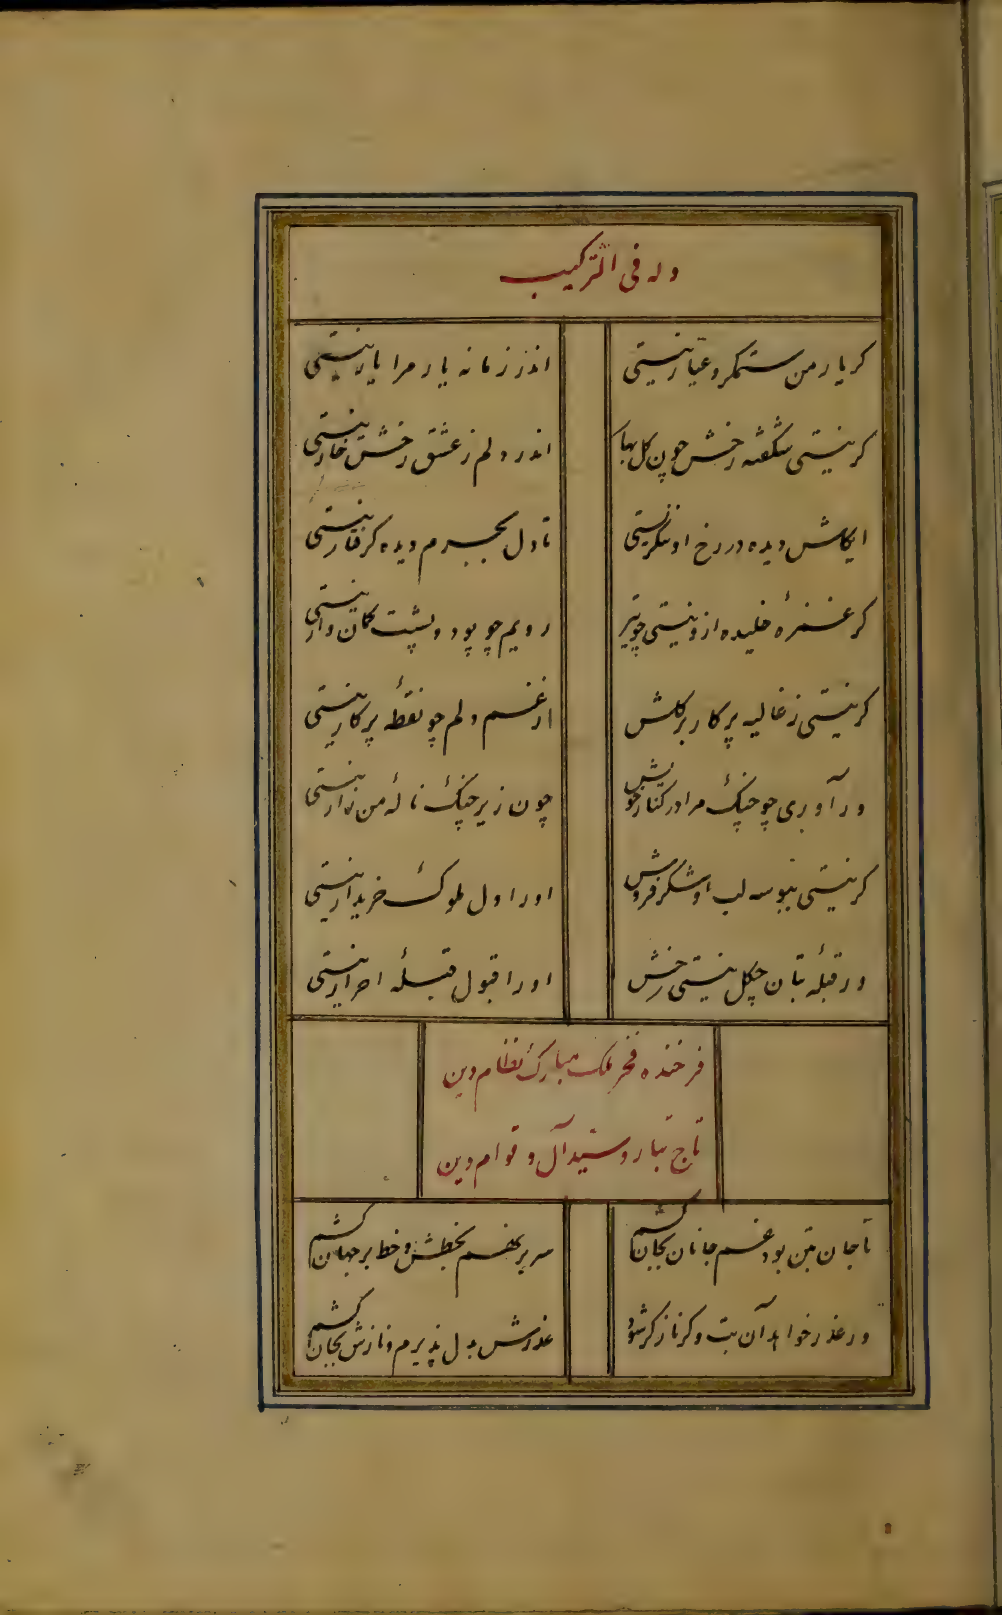 وله فی الترکیب
کر یار من ستمکر و عیار نیستی
اندر زمانه یار مرا یار نیستی
کر نیستی شکفته رخش چون کل بهار
اندر دلم ز عشق رخش خار نیستی
ایکاش دیده در رخ او ننکرستی
تا دل بجرم دیده کرفتار نیستی
کر غمزهٔ خلیده از و نیستی چو تیر
رویم چو پود و پشت کمان وار نیستی
کر نیستی ز غالیه پرکار بر کلش
از غم دلم چو نقطهٔ پرکار نیستی
ور آوری چو چنک مرا در کنار خویش
چون زیر چنک نالهٔ من زار نیستی
کر نیستی ببوسه لب او شکر فروش
او را دل ملوک خریدار نیستی
ور قبلهٔ بتان چکل نیستی رخش
او را قبول قبلهٔ احرار نیستی
فرخنده فخر ملک مبارک نظام دین
تاج تبار و سید آل و قوام دین
تا جان بتن بود غم جانان بجان کشم
سر بر نهم بخطش و خط بر جهان کشم
ور عذر خواهد آن بت و کر ناز کر شود
عذرش بدل پذیرم و نازش بجان کشم